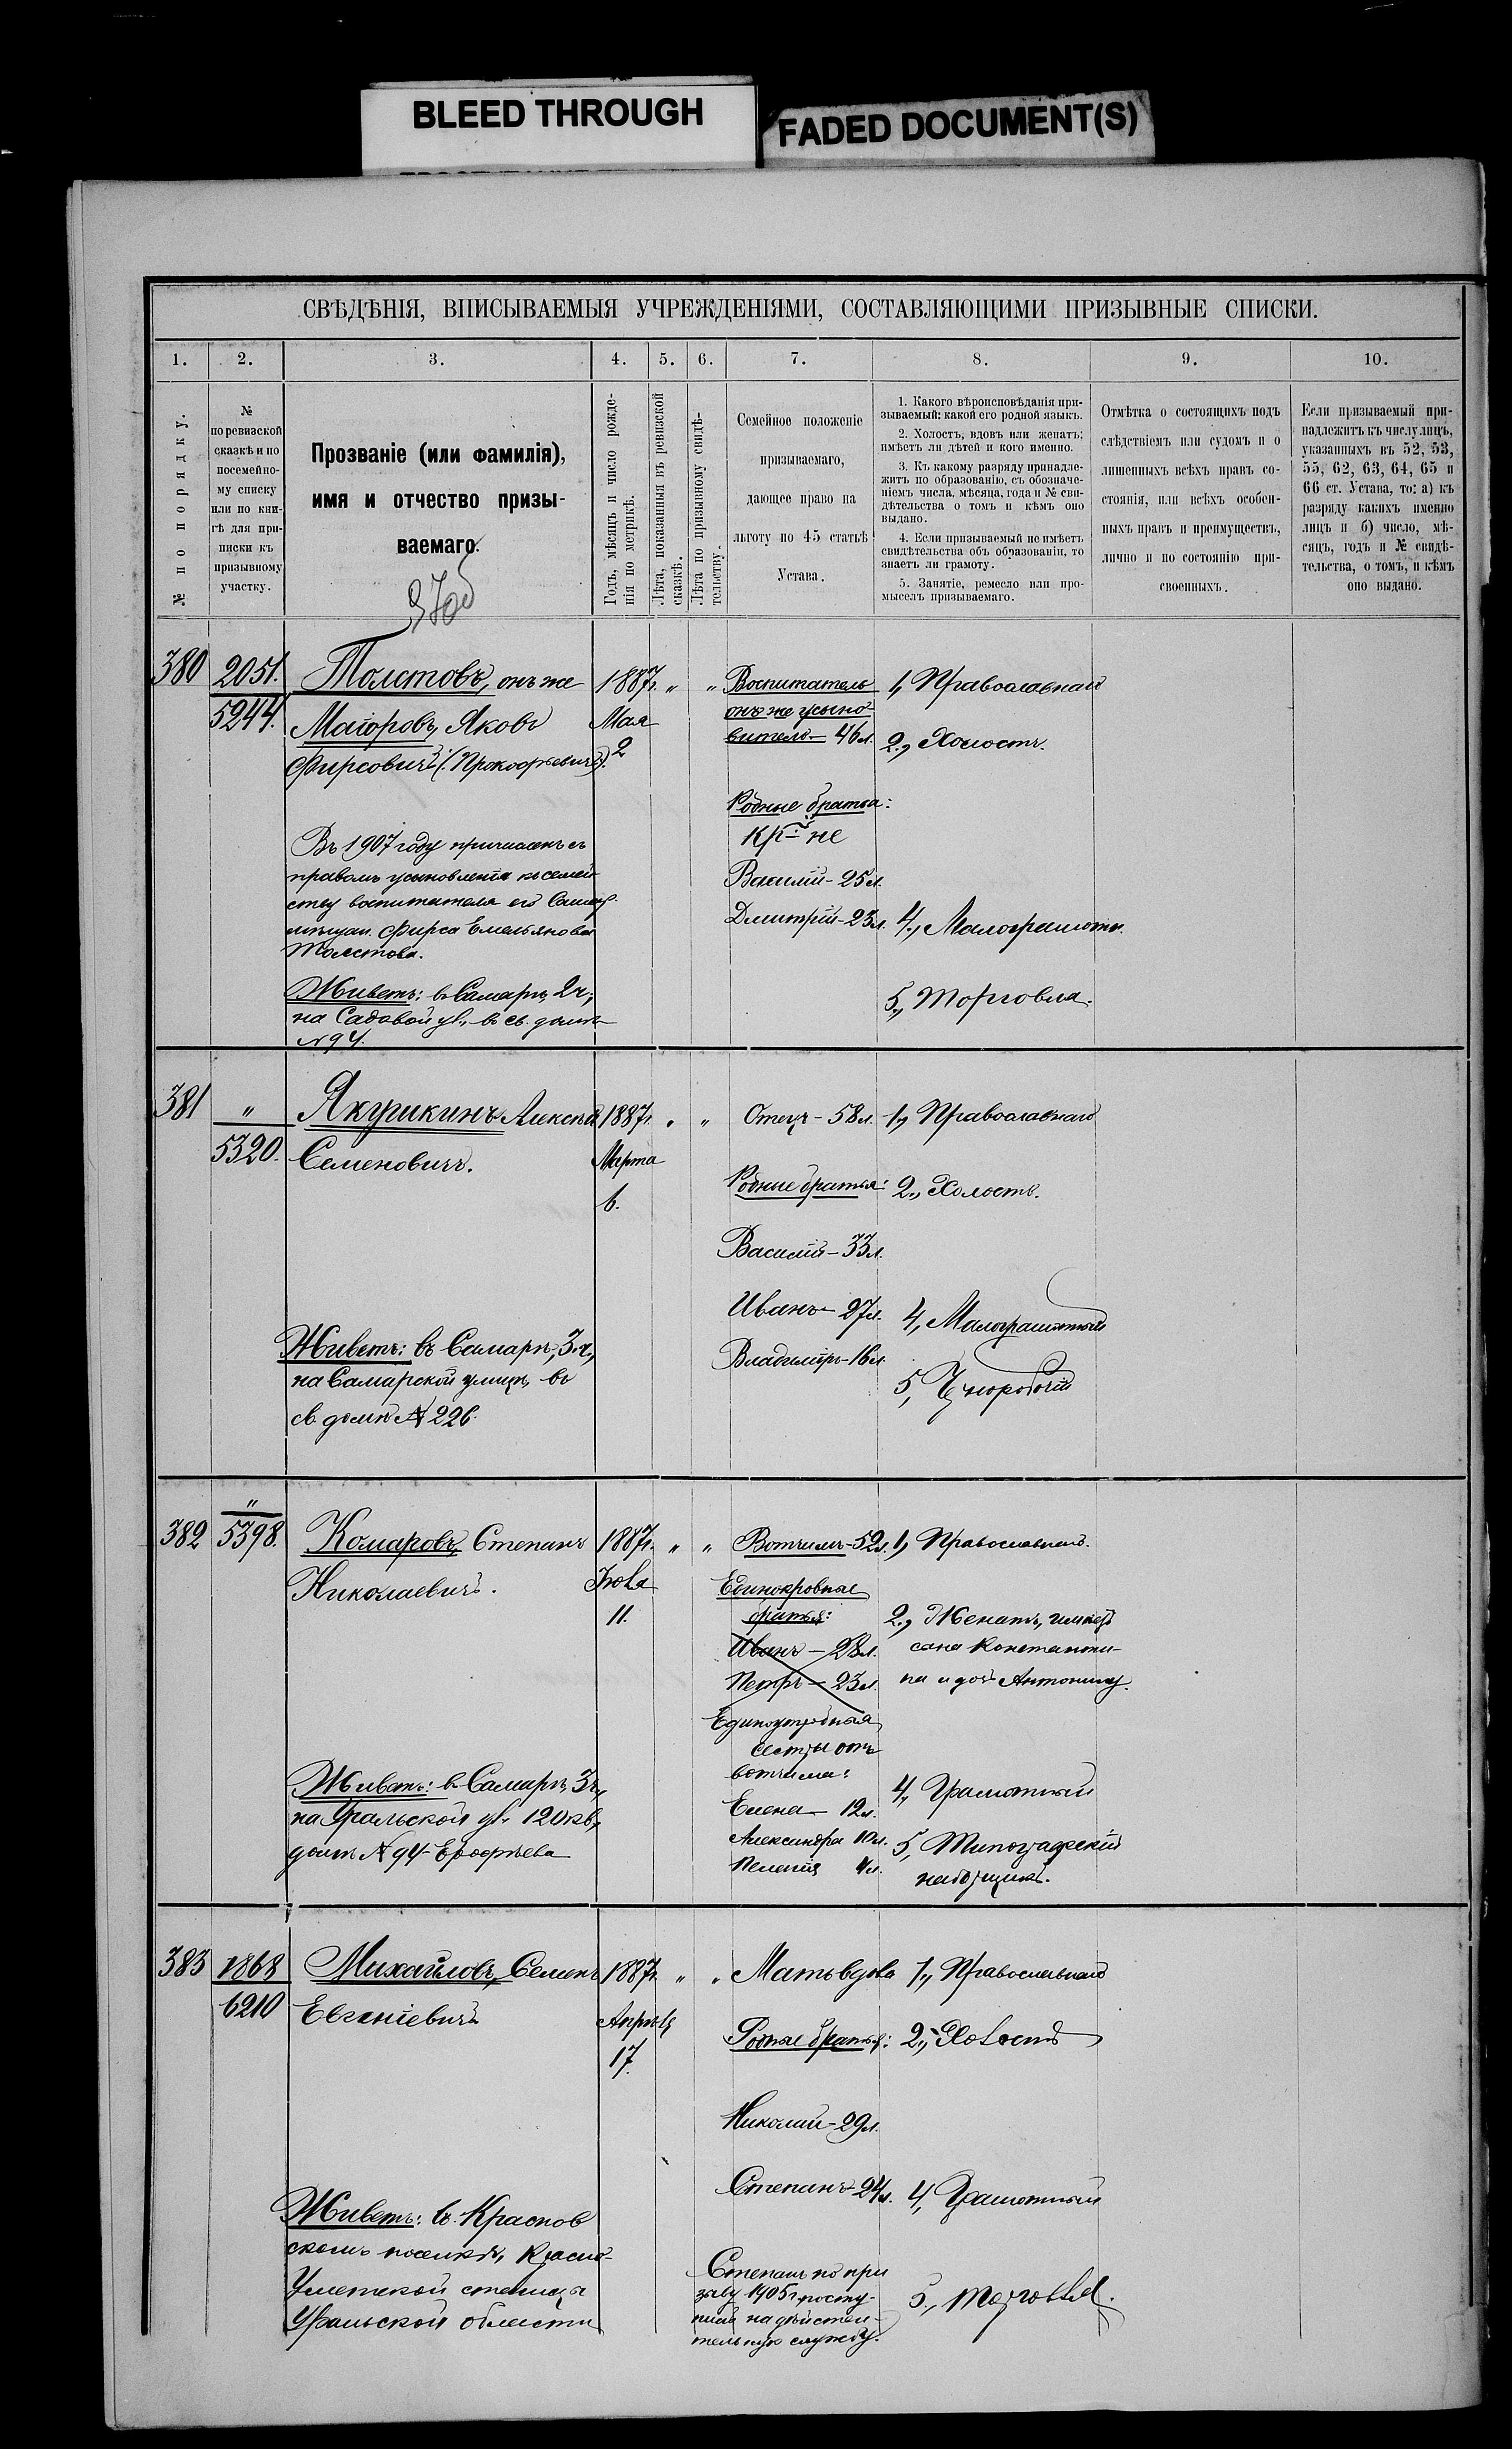 BLEED THROUGH
FADED DOCUMENT(S)
СВѢДѢНІЯ, ВПИСЫВАЕМЫЯ УЧРЕЖДЕНІЯМИ, СОСТАВЛЯЮЩИМИ ПРИЗЫВНЫЕ СПИСКИ.
1. 2. 3. 4. 5. 6. 7. 8. 9. 10.
№ по порядку.
№
по ревизской
сказкѣ и по
посемейно-
му списку
или по кни-
гѣ для при-
писки къ
призывному
участку.
Прозваніе (или фамилія),
имя и отчество призы-
ваемаго.
Годъ, мѣсяцъ и число рожде-
нія по метрикѣ.
Лѣта, показанныя въ ревизской
сказкѣ.
Лѣта по призывному свидѣ-
тельству.
Семейное положеніе
призываемаго,
дающее право на
льготу по 45 статьѣ
Устава.
1. Какого вѣроисповѣданія при-
зываемый; какой его родной языкъ.
2. Холостъ, вдовъ или женатъ;
имѣетъ ли дѣтей и кого именно.
3. Къ какому разряду принадле-
житъ по образованію, съ обозначе-
ніемъ числа, мѣсяца, года и № сви-
дѣтельства о томъ и кѣмъ оно
выдано.
4. Если призываемый не имѣетъ
свидѣтельства объ образованіи, то
знаетъ ли грамоту.
5. Занятіе, ремесло или про-
мыселъ призываемаго.
Отмѣтка о состоящихъ подъ
слѣдствіемъ или судомъ и о
лишенныхъ всѣхъ правъ со-
стоянія, или всѣхъ особен-
ныхъ правъ и преимуществъ,
лично и по состоянію при-
своенныхъ.
Если призываемый при-
надлежитъ къ числу лицъ,
указанныхъ въ 52, 53,
55, 62, 63, 64, 65 и
66 ст. Устава, то: а) къ
разряду какихъ именно
лицъ и б) число, мѣ-
сяцъ, годъ и № свидѣ-
тельства, о томъ, и кѣмъ
оно выдано.
380
2051.
5244.
Толстовъ, онъ же
Маіоровъ, Яковъ
Фирсовичъ (: Прокофьевичъ).
Въ 1907 году причисленъ съ
правомъ усыновленія къ семей-
ству воспитателя его Самар.
мѣщан. Фирса Емельянова
Толстова.
Живетъ: въ Самарѣ, 2 ч.,
на Садовой ул., въ св. домѣ
№ 94.
1887 г.
Мая
2
" "
Воспитатель
онъ же усыно-
витель - 46 л.
Родные братья:
Василій - 25 л.
Дмитрій - 23 л.
1, Православнаго
2., Холостъ.
4., Малограмотн.
5., Торговля.
381
"
5320.
Якушкинъ Алексѣй
Семеновичъ.
Живетъ: въ Самарѣ, 3 ч.,
на Самарской улицѣ, въ
св. домѣ № 226.
1887 г.
Марта
6.
" "
Отецъ - 58 л.
Родные братья:
Василій - 33 л.
Иванъ - 27 л.
Владиміръ - 16 л.
1, Православнаго
2., Холостъ.
4, Малограмотный
5, Чернорабочій
382
"
5398.
Комаровъ, Степанъ
Николаевичъ.
Живетъ: въ Самарѣ, 3 ч.,
на Уральской ул. 120 кв.,
домъ № 94 Ерофѣева
1887 г.
Іюля
11.
" "
Вотчимъ - 52 л.
Единокровные
братья:
Иванъ - 28 л.
Петръ - 23 л.
Единоутробныя
сестры отъ
вотчима:
Елена - 12 л.
Александра 10 л.
Пелагія 4 л.
1, Православнаго.
2., Женатъ, имѣетъ
сына Константи-
на и дочь Антонину.
4., Грамотный
5, Типографскій
наборщикъ.
383
1868
6210
Михайловъ, Семенъ
Евгеніевичъ
Живетъ: въ Краснов
скомъ поселкѣ, Красно-
Уметской станицы
Уральской области
1887 г.
Апрѣля
17.
" "
Мать вдова
Родные братья:
Николай - 29 л.
Степанъ - 24 л.
Степанъ по при
зыву 1905 г. посту-
пилъ на дѣйстви-
тельную службу.
1., Православнаго
2., Холостъ
4, Грамотный
5., Торговля.